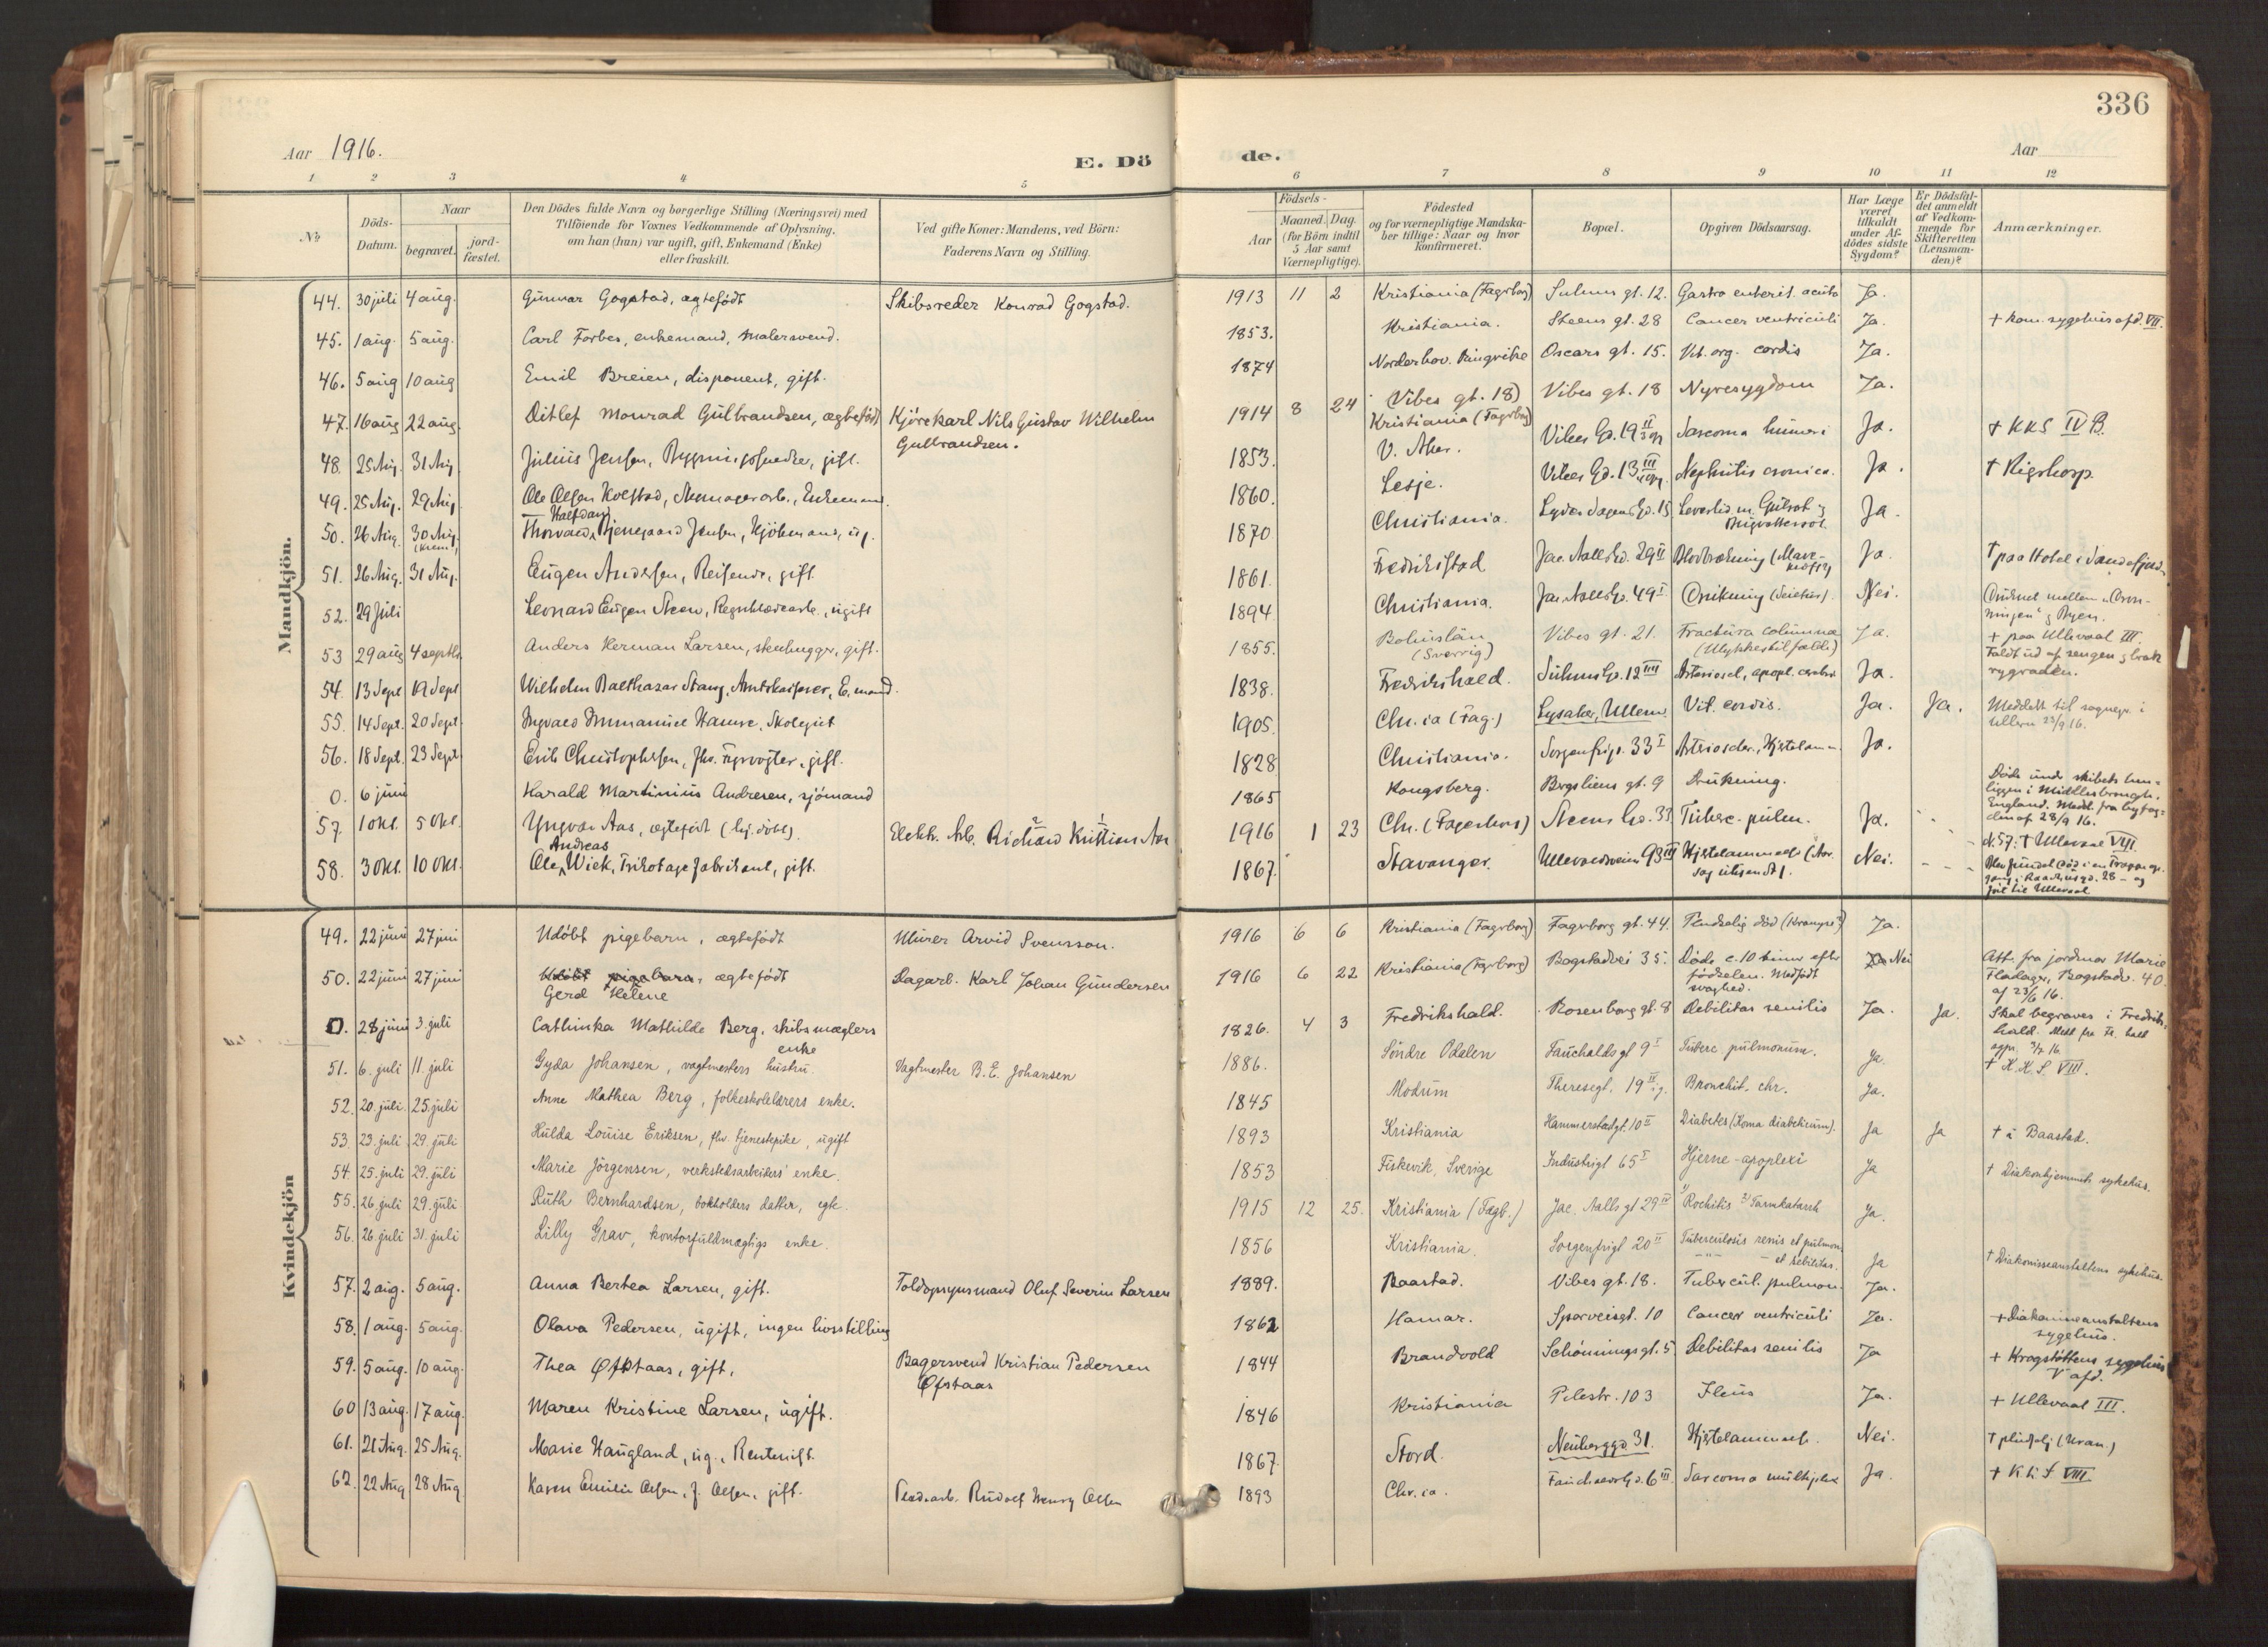 336
Aar 1916.
E. Dö
de.
Aar
1 2 3 4 5 6 7 8 9 10 11 12
No
Döds-Datum.
Naar
begravet.
jord-fæstet.
Den Dödes fulde Navn og borgerlige Stilling (Næringsvei) med
Tilföiende for Voxnes Vedkommende af Oplysning,
om han (hun) var ugift, gift, Enkemand (Enke)
eller fraskilt.
Ved gifte Koner: Mandens, ved Börn:
Faderens Navn og Stilling.
Födsels-
Aar
Maaned. Dag.
(for Börn indtil
5 Aar samt
Værnepligtige).
Födested
og for værnepligtige Mandska-
ber tillige: Naar og hvor
konfirmeret.
Bopæl.
Opgiven Dödsaarsag.
Har Læge
været
tilkaldt
under Af-
dödes sidste
Sygdom?
Er Dödsfal-
det anmeldt
af Vedkom-
mende for
Skifteretten
(Lensman-
den)?
Anmærkninger.
Mandkjön.
44. 30 juli 4 aug. Gunnar Gogstad, ægtefødt Skibsreder Konrad Gogstad. 1913 11 2 Kristiania (Fagerborg) Suhms gt. 12. Gastro enterit. acuta Ja.
45. 1 aug. 5 aug. Carl Forbes, enkemand, malersvend. 1853. Kristiania. Steens gt. 28 Cancer ventriculi Ja. + kom. sygehus afd. VII.
46. 5 aug 10 aug Emil Breien, disponent, gift. 1874 Norderhov. Ringerike Oscars gt. 15. Vit. org. cordis Ja.
47. 16 aug 22 aug. Ditlef Monrad Gulbrandsen, ægtefødt Kjørekarl Nils Gustav Wilhelm
Gulbrandsen. 1914 8 24 (Vibes gt. 18)
Kristiania (Fagerborg) Vibes gt. 18 Nyresygdom Ja.
48. 25 Aug. 31 Aug Julius Jensen, gift. 1853. V. Aker. Vibes Gd. 19 II Sarcoma humeri Ja. + KKS IV B.
49. 25 Aug. 29 Aug Ole Olsen Kolstad, Enkemand 1860. Lesje. Vibes Gd. 13 III Nephritis cronica. Ja. † Rigshosp.
50. 26 Aug. 30 Aug. (Krem.) Halfdan
Thorvald Jensen, ug. 1870 Christiania. Ja.
51. 26 Aug. 31 Aug. Eugen Andersen, Reisende, gift. 1861. Fredrikstad Jac. Aalls Gd. 29 II Ja. † paa Hotel i Sandefjord
52. 29 Juli Leonard Eugen Steen, ugift 1894 Christiania. Jac Aalls Gd. 49 I Drukning Nei.
53 29 aug 4 septbr. Anders Herman Larsen, stenhugger, gift. 1855. Bohuslän
(Sverrig) Vibes gt. 21. Fractura columna
(Ulykkestilfælde) Ja. + paa Ullevaal III.
Faldt ud af sengen og brak
rygraden.
54. 13 Sept 19 Sept Wilhelm Balthazar Stang, Amtskasserer, E. mand. 1838. Fredrikshald. Suhms Gd. 12 III Arterioscl., apopl. cerebri Ja.
55. 14 Sept. 20 Sept. Ingvald Immanuel Hamre, Skolegut 1905. Chr.ia (Fag.) Lysaker, Ullern Vit. cordis. Ja. Ja. Meddelt til sognepr. i
Ullern 23/9 16.
56. 18 Sept. 23 Sept. Erik Christophersen, fhv. Fyrvogter, gift. 1828 Christiania. Sorgenfrigt. 33 I Ja.
0. 6 juni Harald Martinius Andresen, sjömand 1865 Kongsberg. Bergsliens gt. 9 Drukning. Døde under skibets hen-
liggen i Middlesbrough,
England. Medd. fra
28/9 16.
57. 1 okt. 5 okt. Yngvar Aas, ægtefødt (hj. døbt). Elektr. Arb. Richard Kristian Aas 1916 1 23 Chr. (Fagerborg) Steens Gd. 33 Tuberc. pulm. Ja. N. 57: † Ullevaal VIII.
58. 3 okt. 10 okt. Andreas
Ole Wiek, Trikotagefabrikant, gift. 1867. Stavanger. Ullevaalsveien 93 III Hjertelammelse Nei. Blev fundet død i en Trappeop-
gang i Raadhusgd. 28 - og
til Ullevaal
Kvindekjön
49. 22 juni 27 juni Udøbt pigebarn, ægtefødt Murer Arvid Svensson. 1916 6 6 Kristiania (Fagerborg) Fagerborg gt. 44. Pludselig død (Krampe?) Ja.
50. 22 juni 27 juni Udöbt pigebarn, ægtefødt
Gerd Helene Lagarb. Karl Johan Gundersen 1916 6 22 Kristiania (Fagerborg) Bogstadvei 35. Døde c. 10 timer efter
fødselen. Medfødt
svaghed. Ja Nei Att. fra jordmor Marie
Fladager, Bogstadv. 40
af 23/6 16.
0. 28 juni 3. juli Cathinka Mathilde Berg, skibsmæglers
enke 1826. 4 3 Fredrikshald. Rosenborg gt. 8 Debilitas senilis Ja. Ja. Skal begraves i Fredriks-
hald. Medd. fra Fr. hald
sgpr. 3/7 16.
51. 6. juli 11. juli Gyda Johansen, vagtmesters hustru. Vagtmester B. E. Johansen 1886. Söndre Odalen Fauchaldsgt 9 I Tuberc. pulmonum. Ja. † K. K. S. VIII.
52. 20. juli 25. juli Anne Mathea Berg, folkeskolelærers enke. 1845 Modum Theresegt. 19 II Bronchit. chr. Ja.
53. 23. juli 29. juli Hulda Louise Eriksen, fhv. tjenestepike, ugift 1893 Kristiania Hammerstadgt. 10 II Diabetes (Koma diabeticum). Ja Ja † i Baastad.
54. 25. juli 29. juli Marie Jörgensen, verkstedsarbeiders enke. 1853 Fiskevik, Sverige Industrigt 65 I Hjerne-apoplexi Ja † Diakonhjemmets sykehus.
55. 26. juli 29. juli Ruth Bernhardsen, bokholders datter, egte. 1915 12 25. Kristiania (Fagb.) Jac. Aalls gt 29 IV 1) Rachitis 2) Tarmkatarrh Ja.
56. 26. juli 31. juli Lilly Grav, kontorfuldmægtigs enke. 1856 Kristiania. Sorgenfrigt 20 II Tuberculosis renis et pulmon.
et debilitas. Ja † Diakonisseanstaltens sykehus.
57. 2 aug. 5 aug. Anna Bertea Larsen, gift. Toldopsynsmand Oluf Severin Larsen 1889. Baastad. Vibes gt. 18. Tubercul. pulmon. Ja.
58. 1 aug. 5 aug. Olava Pedersen, ugift, ingen livsstilling 1862 Hamar. Sporveisgt. 10 Cancer ventriculi Ja. + Diakonisseanstaltens
sygehus.
59. 5 aug. 10 aug. Thea Øfstaas, gift. Bagersvend Kristian Pedersen
Øfstaas 1844 Brandvold Schönnings gt. 5 Debilitas senilis Ja + Krogstøttens sygehus
V afd.
60 13 aug. 17 aug. Maren Kristine Larsen, ugift. 1846 Kristiania Pilestr. 103 Ileus Ja. + Ullevaal III.
61. 21 Aug. 25 Aug. Marie Haugland, ug., Rentenist. 1867. Stord. Neuberggd. 31. Hjertelammelse. Nei. † pludselig (Kran.)
62. 22 Aug 28 Aug. Karen Emilie Olsen, f. Olsen, gift. Rudolf Henry Olsen 1893 Chr.ia. Fauchalds Gd. 6 III Sarcoma multiplex Ja. + K k S VIII